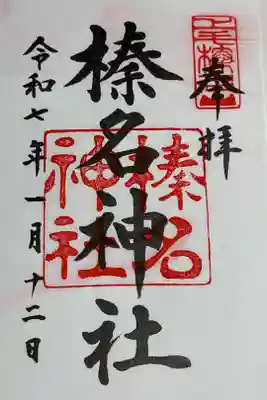 奉拝
榛名神社
榛名
神社
令和七年一月十二日